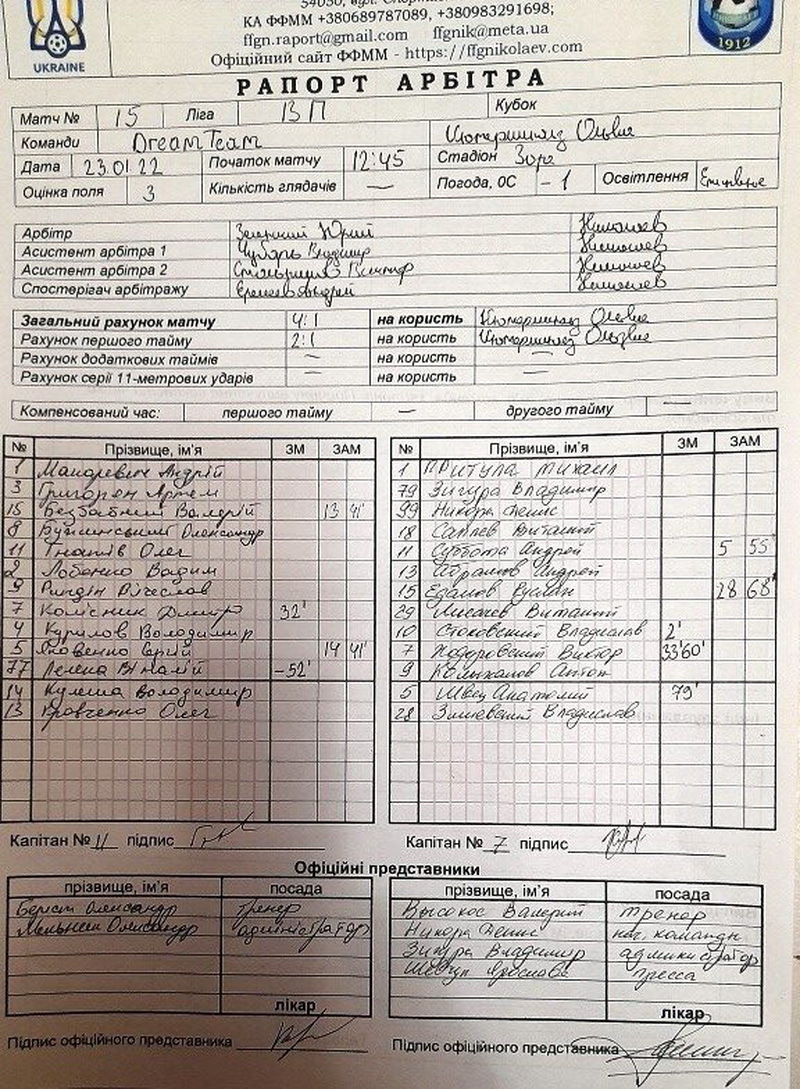 UKRAINE
КА ФФММ +380689787089, +380983291698;
ffgn.raport@gmail.com ffgnik@meta.ua
Офіційний сайт ФФММ - https://ffgnikolaev.com
1912
РАПОРТ АРБІТРА
Матч № 15 Ліга ВП Кубок
Команди DreamTeam
Дата 23.01.22 Початок матчу 12:45 Стадіон Зоря
Оцінка поля 3 Кількість глядачів — Погода, 0С -1 Освітлення
Арбітр Юрий Николаев
Асистент арбітра 1 Чубарь Владимир Николаев
Асистент арбітра 2 Виктор Николаев
Спостерігач арбітражу Андрей Николаев
Загальний рахунок матчу 4:1 на користь
Рахунок першого тайму 2:1 на користь
Рахунок додаткових таймів — на користь —
Рахунок серії 11-метрових ударів — на користь —
Компенсований час: першого тайму — другого тайму —
№ Прізвище, ім'я ЗМ ЗАМ
1 Макаревич Андрій
3 Григорян Артем
15 Безбабний Валерій 13 41'
8 Олександр
11 Ігнатів Олег
2 Лобенко Вадим
9 Вячеслав
7 Колісник Дмитро 32'
4 Курилов Володимир
5 Яковенко Сергій 14 41'
77 Віталій -52'
14 Кулеша Володимир
13 Кравченко Олег
№ Прізвище, ім'я ЗМ ЗАМ
1 ПРИТУЛА МИХАИЛ
79 Зигура Владимир
99 Никора Денис
18 Виталий
11 Суббота Андрей 5 55'
13 Абрамов Андрей
15 Руслан 28 68'
29 Лисачев Виталий
10 Стоковский Владислав 2'
7 Ходоровский Виктор 33'60'
9 Антон
5 Швец Анатолий 79'
28 Владислав
Капітан № 11 підпис
Капітан № 7 підпис
Офіційні представники
прізвище, ім'я посада
Олександр тренер
Мельник Олександр адміністратор
лікар
прізвище, ім'я посада
Высокос Валерий тренер
Никора Денис нач. команди
Зигура Владимир администратор
Шевчук Ярослава пресса
лікар
Підпис офіційного представника
Підпис офіційного представника